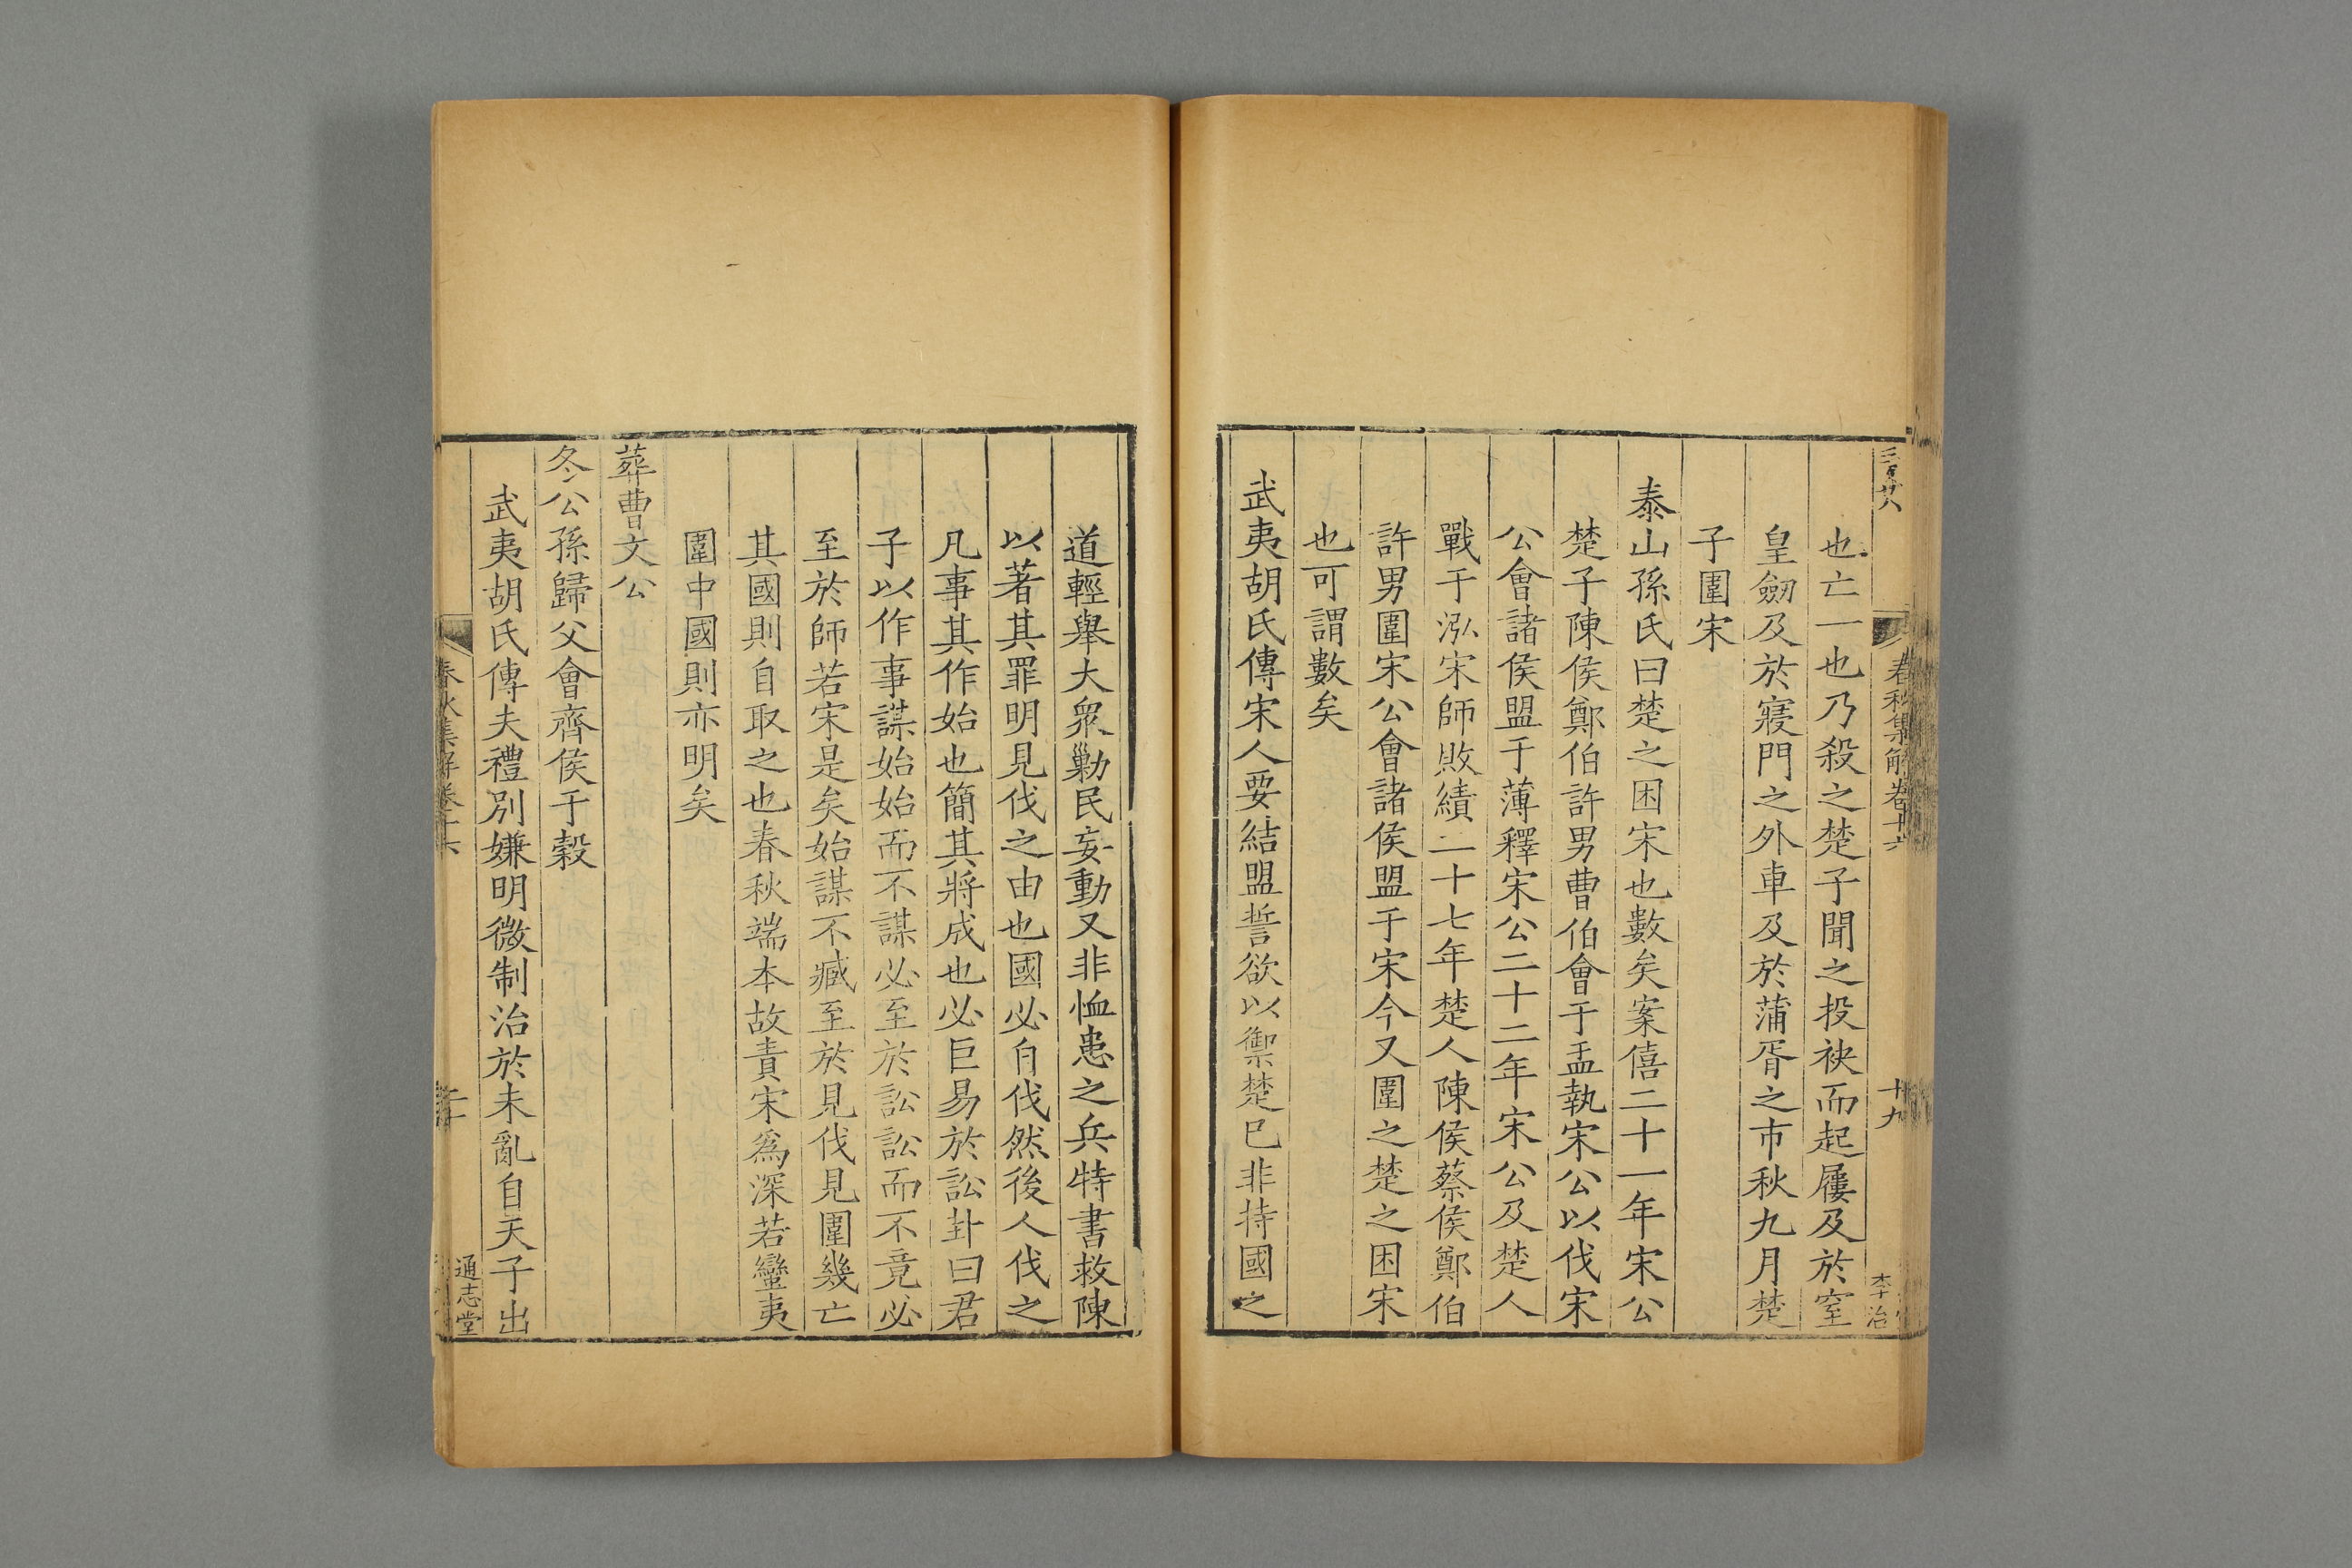 三百廿八
春秋集解卷十六
十九
李治
也亡一也乃殺之楚子聞之投袂而起屨及於窒
皇劒及於寢門之外車及於蒲胥之市秋九月楚
子圍宋
泰山孫氏曰楚之困宋也數矣案僖二十一年宋公
楚子陳侯鄭伯許男曹伯會于盂執宋公以伐宋
公會諸侯盟于薄釋宋公二十二年宋公及楚人
戰于泓宋師敗績二十七年楚人陳侯蔡侯鄭伯
許男圍宋公會諸侯盟于宋今又圍之楚之困宋
也可謂數矣
武夷胡氏傳宋人要結盟誓欲以禦楚已非持國之
道輕舉大衆勦民妄動又非恤患之兵特書救陳
以著其罪明見伐之由也國必自伐然後人伐之
凡事其作始也簡其將成也必巨易於訟卦曰君
子以作事謀始始而不謀必至於訟訟而不竟必
至於師若宋是矣始謀不臧至於見伐見圍幾亡
其國則自取之也春秋端本故責宋爲深若蠻夷
圍中國則亦明矣
葬曹文公
冬公孫歸父會齊侯于穀
武夷胡氏傳夫禮別嫌明微制治於未亂自天子出
春秋集解卷十六
通志堂